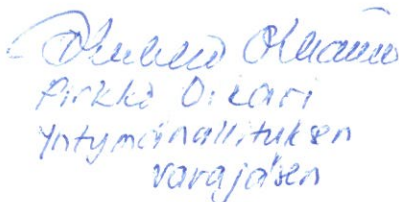 Pirkko Oikari
Yhtymähallituksen
varajäsen